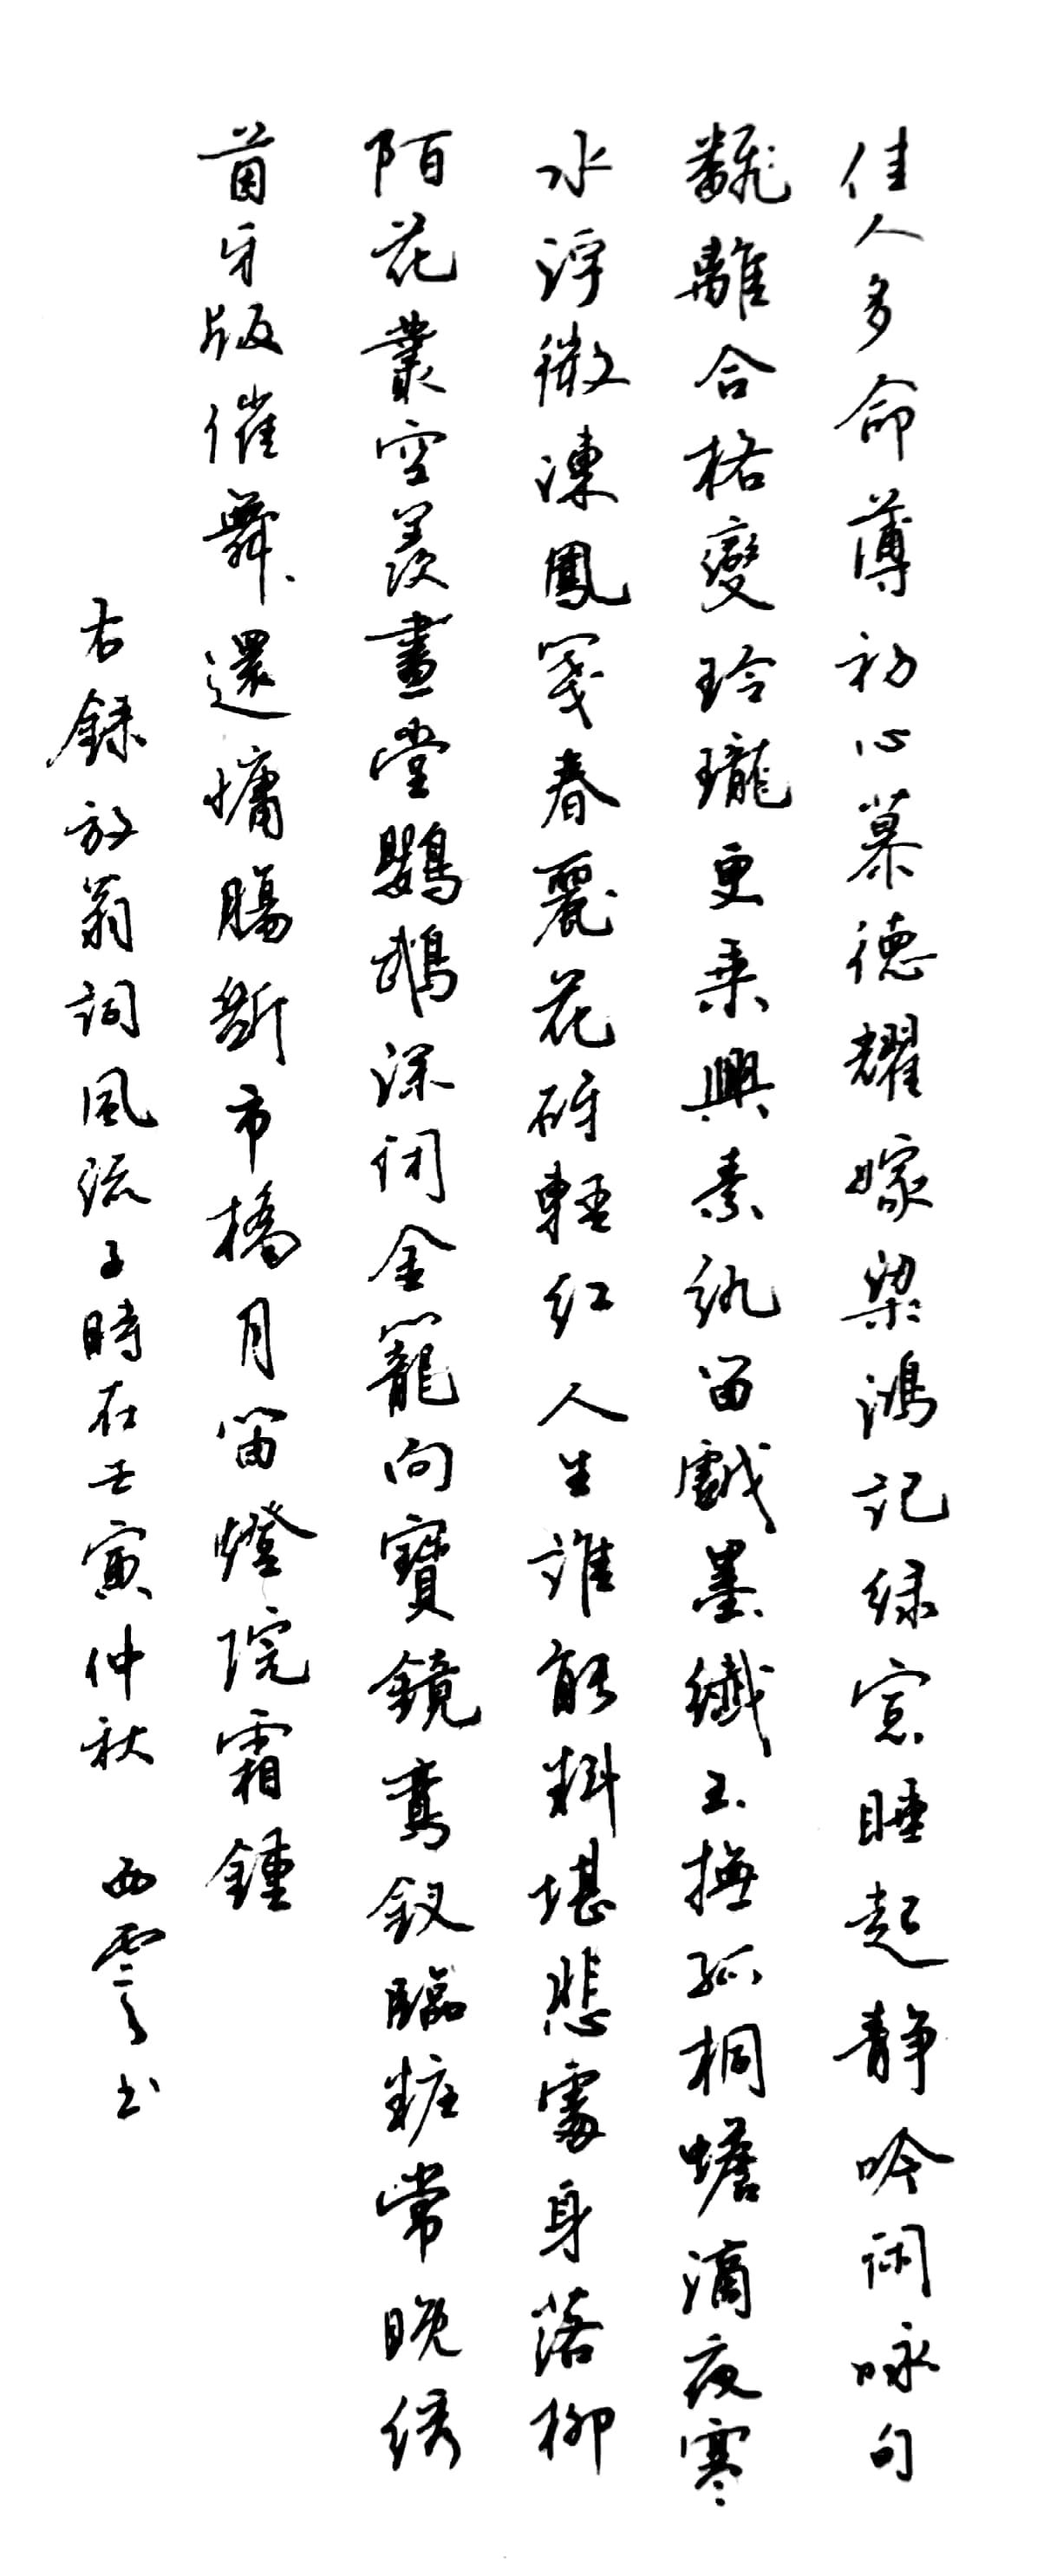 佳人多命薄初心慕德耀嫁梁鴻記绿窓睡起静吟闲咏句
翻離合格變玲瓏更乗興素紈留戯墨纖玉撫孤桐蟾滴夜寒
水浮微凍鳳箋春麗花砑輕红人生誰能料堪悲處身落柳
陌花叢空羡畫堂鸚鵡深闭金籠向寶鏡鸾釵臨粧常晚绣
茵牙版催舞還慵腸斷市橋月笛燈院霜鍾
右録放翁詞風流子時在壬寅仲秋 西雲书